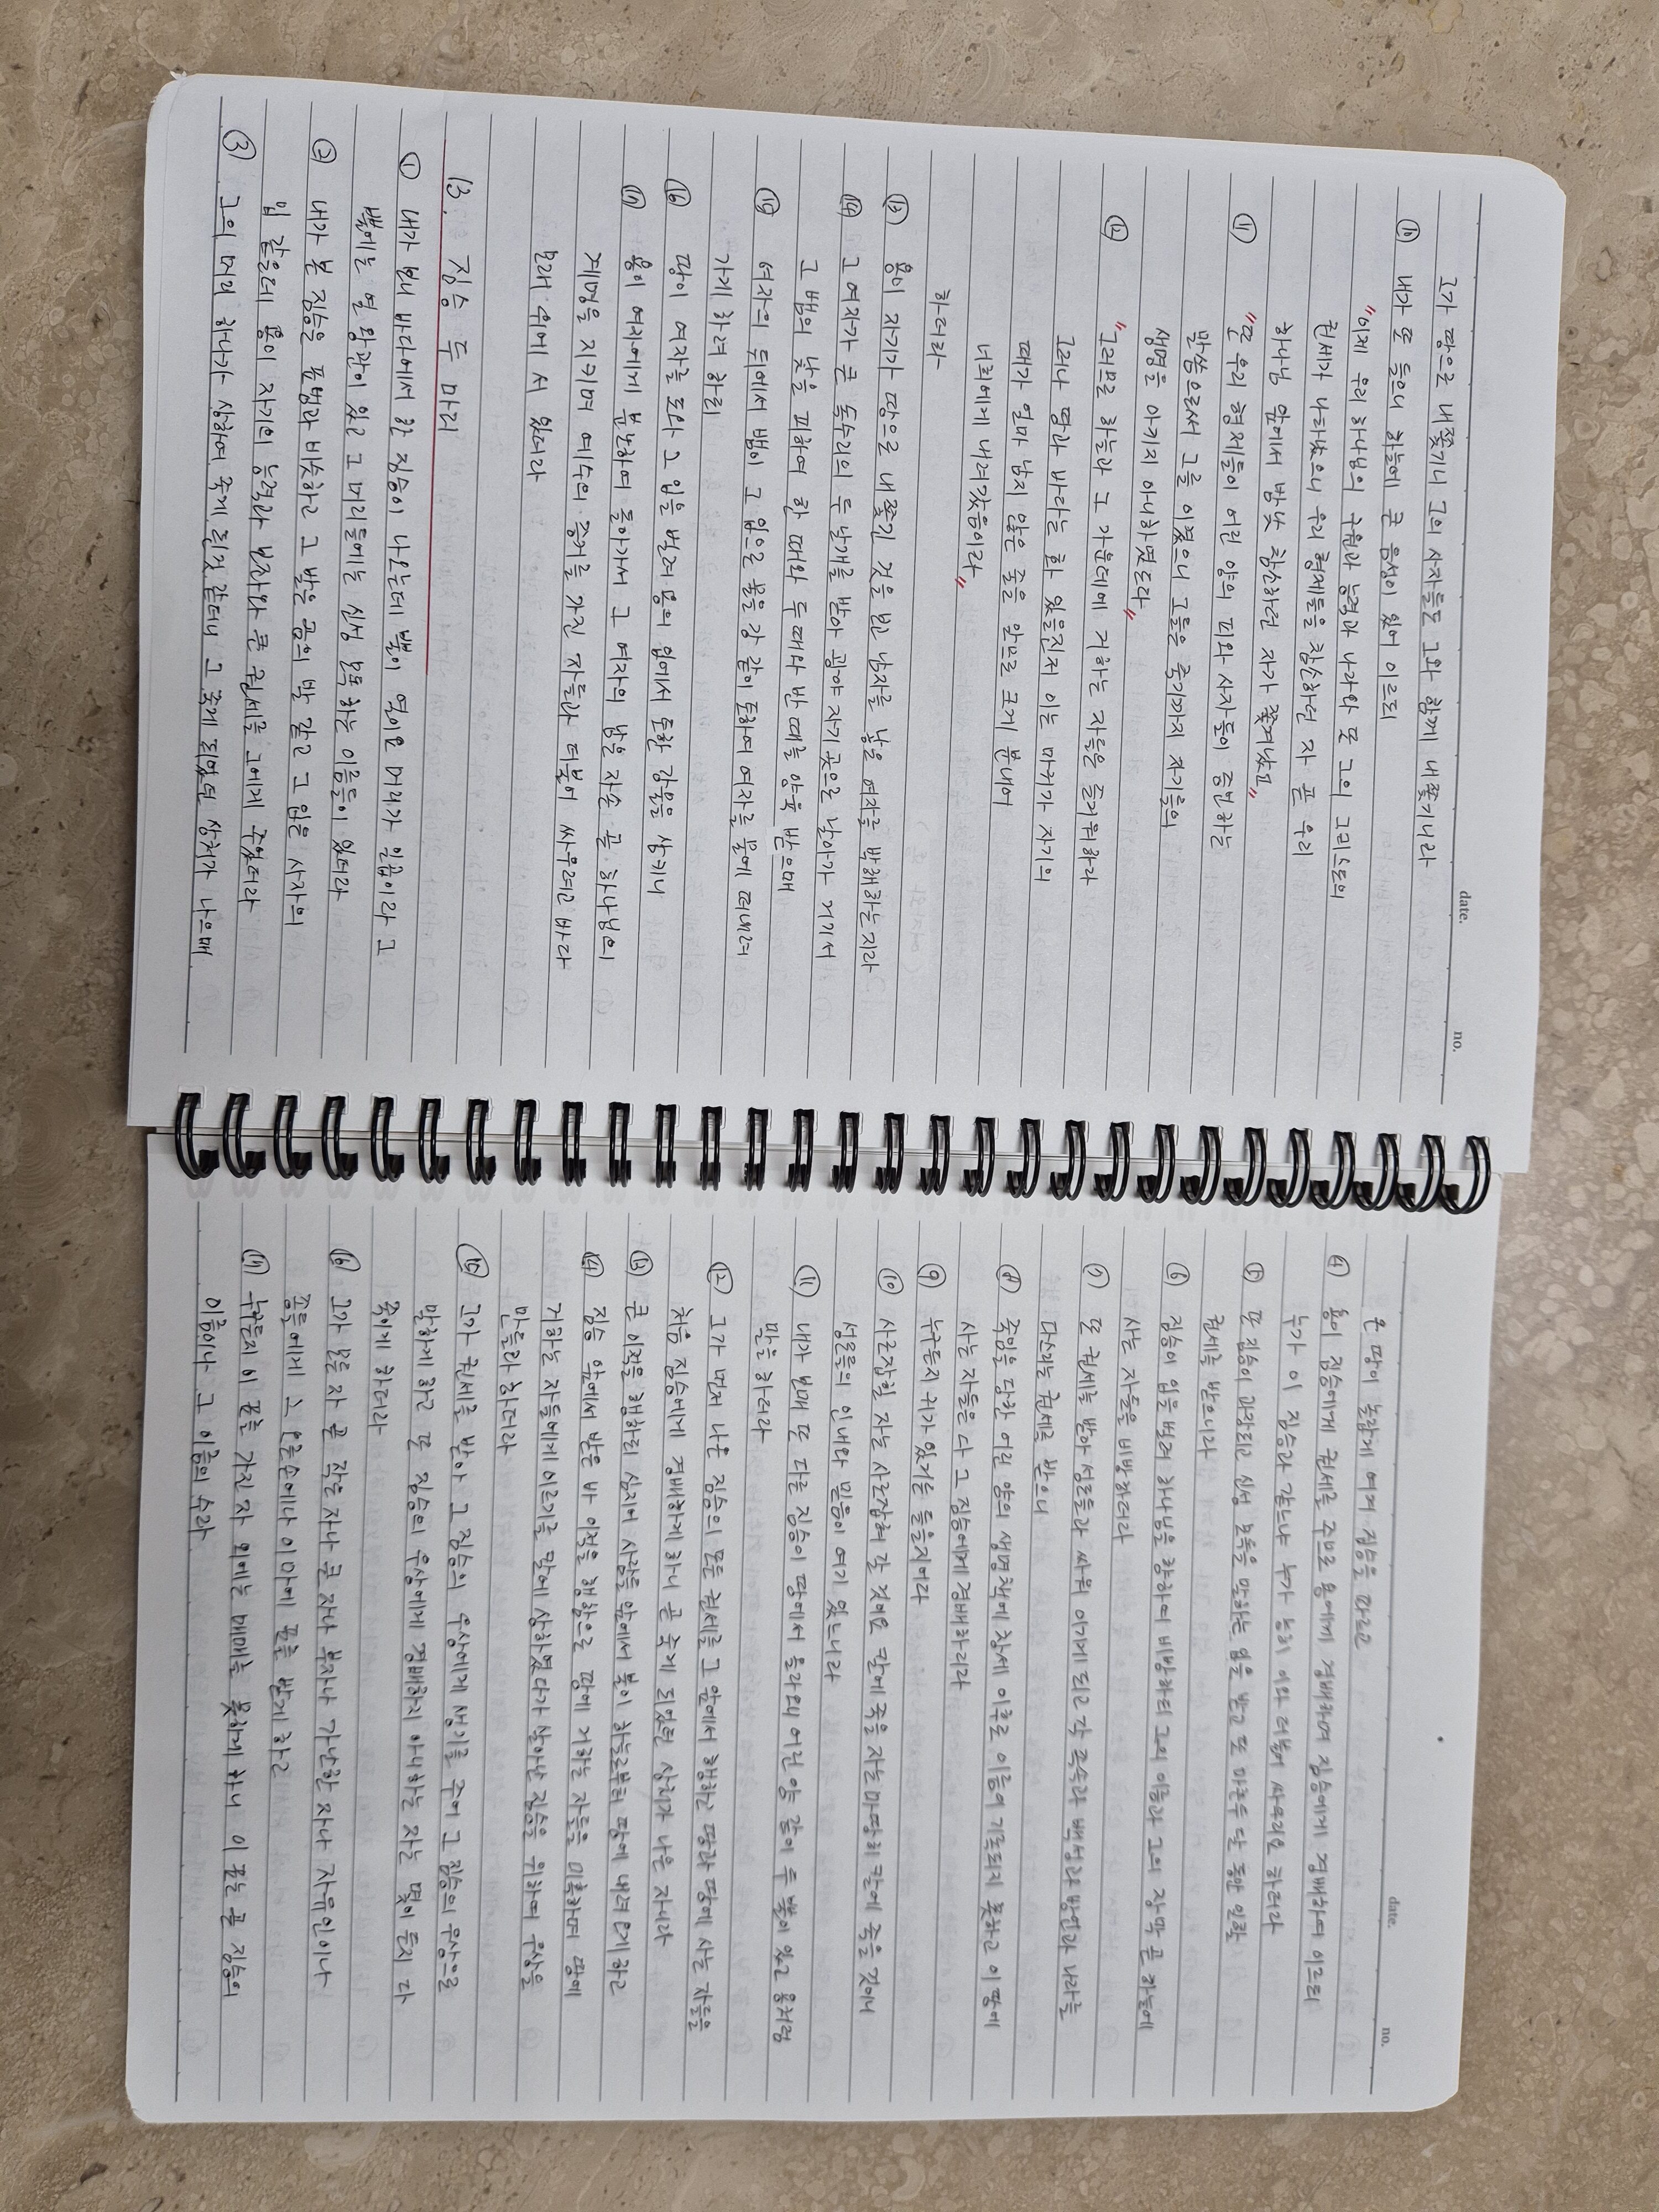 date. no.
그가 땅으로 내쫓기니 그의 사자들도 그와 함께 내쫓기니라
⑩ 내가 또 들으니 하늘에 큰 음성이 있어 이르되
"이제 우리 하나님의 구원과 능력과 나라와 또 그의 그리스도의
권세가 나타났으니 우리 형제들을 참소하던 자 곧 우리
하나님 앞에서 밤낮 참소하던 자가 쫓겨났고"
⑪ "또 우리 형제들이 어린 양의 피와 자기들이 증언하는
말씀으로써 그를 이겼으니 그들은 죽기까지 자기들의
생명을 아끼지 아니하였도다"
⑫ "그러므로 하늘과 그 가운데에 거하는 자들은 즐거워하라
그러나 땅과 바다는 화 있을진저 이는 마귀가 자기의
때가 얼마 남지 않은 줄을 앎으로 크게 분내어
너희에게 내려갔음이라"
하더라
⑬ 용이 자기가 땅으로 내쫓긴 것을 보고 남자를 낳은 여자를 박해하는지라
⑭ 그 여자가 큰 독수리의 두 날개를 받아 광야 자기 곳으로 날아가 거기서
그 뱀의 낯을 피하여 한 때와 두 때와 반 때를 양육 받으매
⑮ 여자의 뒤에서 뱀이 그 입으로 물을 강 같이 토하여 여자를 물에 떠내려
가게 하려 하되
⑯ 땅이 여자를 도와 그 입을 벌려 용의 입에서 토한 강물을 삼키니
⑰ 용이 여자에게 분노하여 돌아가서 그 여자의 남은 자손 곧 하나님의
계명을 지키며 예수의 증거를 가진 자들과 더불어 싸우려고 바다
모래 위에 서 있더라
13. 짐승 두 마리
① 내가 보니 바다에서 한 짐승이 나오는데 뿔이 열이요 머리가 일곱이라 그
뿔에는 열 왕관이 있고 그 머리들에는 신성 모독 하는 이름들이 있더라
② 내가 본 짐승은 표범과 비슷하고 그 발은 곰의 발 같고 그 입은 사자의
입 같은데 용이 자기의 능력과 보좌와 큰 권세를 그에게 주었더라
③ 그의 머리 하나가 상하여 죽게 된것 같더니 그 죽게 되었던 상처가 나으매
date. no.
온 땅이 놀랍게 여겨 짐승을 따르고
④ 용이 짐승에게 권세를 주므로 용에게 경배하며 짐승에게 경배하여 이르되
누가 이 짐승과 같으냐 누가 능히 이와 더불어 싸우리요 하더라
⑤ 또 짐승이 과장되고 신성 모독을 말하는 입을 받고 또 마흔두 달 동안 일할
권세를 받으니라
⑥ 짐승이 입을 벌려 하나님을 향하여 비방하되 그의 이름과 그의 장막 곧 하늘에
사는 자들을 비방하더라
⑦ 또 권세를 받아 성도들과 싸워 이기게 되고 각 족속과 백성과 방언과 나라를
다스리는 권세를 받으니
⑧ 죽임을 당한 어린 양의 생명책에 창세 이후로 이름이 기록되지 못하고 이 땅에
사는 자들은 다 그 짐승에게 경배하리라
⑨ 누구든지 귀가 있거든 들을지어다
⑩ 사로잡힐 자는 사로잡혀 갈 것이요 칼에 죽을 자는 마땅히 칼에 죽을 것이니
성도들의 인내와 믿음이 여기 있느니라
⑪ 내가 보매 또 다른 짐승이 땅에서 올라오니 어린 양 같이 두 뿔이 있고 용처럼
말을 하더라
⑫ 그가 먼저 나온 짐승의 모든 권세를 그 앞에서 행하고 땅과 땅에 사는 자들을
처음 짐승에게 경배하게 하니 곧 죽게 되었던 상처가 나은 자니라
⑬ 큰 이적을 행하되 심지어 사람들 앞에서 불이 하늘로부터 땅에 내려오게 하고
⑭ 짐승 앞에서 받은 바 이적을 행함으로 땅에 거하는 자들을 미혹하며 땅에
거하는 자들에게 이르기를 칼에 상하였다가 살아난 짐승을 위하여 우상을
만들라 하더라
⑮ 그가 권세를 받아 그 짐승의 우상에게 생기를 주어 그 짐승의 우상으로
말하게 하고 또 짐승의 우상에게 경배하지 아니하는 자는 몇이든지 다
죽이게 하더라
⑯ 그가 모든 자 곧 작은 자나 큰 자나 부자나 가난한 자나 자유인이나
종들에게 그 오른손에나 이마에 표를 받게 하고
⑰ 누구든지 이 표를 가진 자 외에는 매매를 못하게 하니 이 표는 곧 짐승의
이름이나 그 이름의 수라